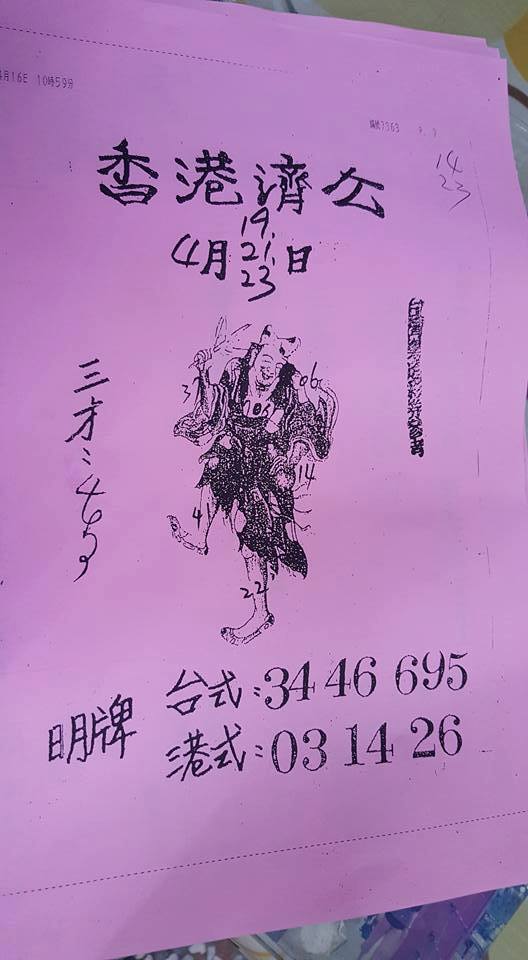 4月16日 10時59分
編號7363
14
23
香港濟公
19.
4月21.日
23
三才:4659
06
14
4
22
明牌 台式:34 46 695
港式:03 14 26